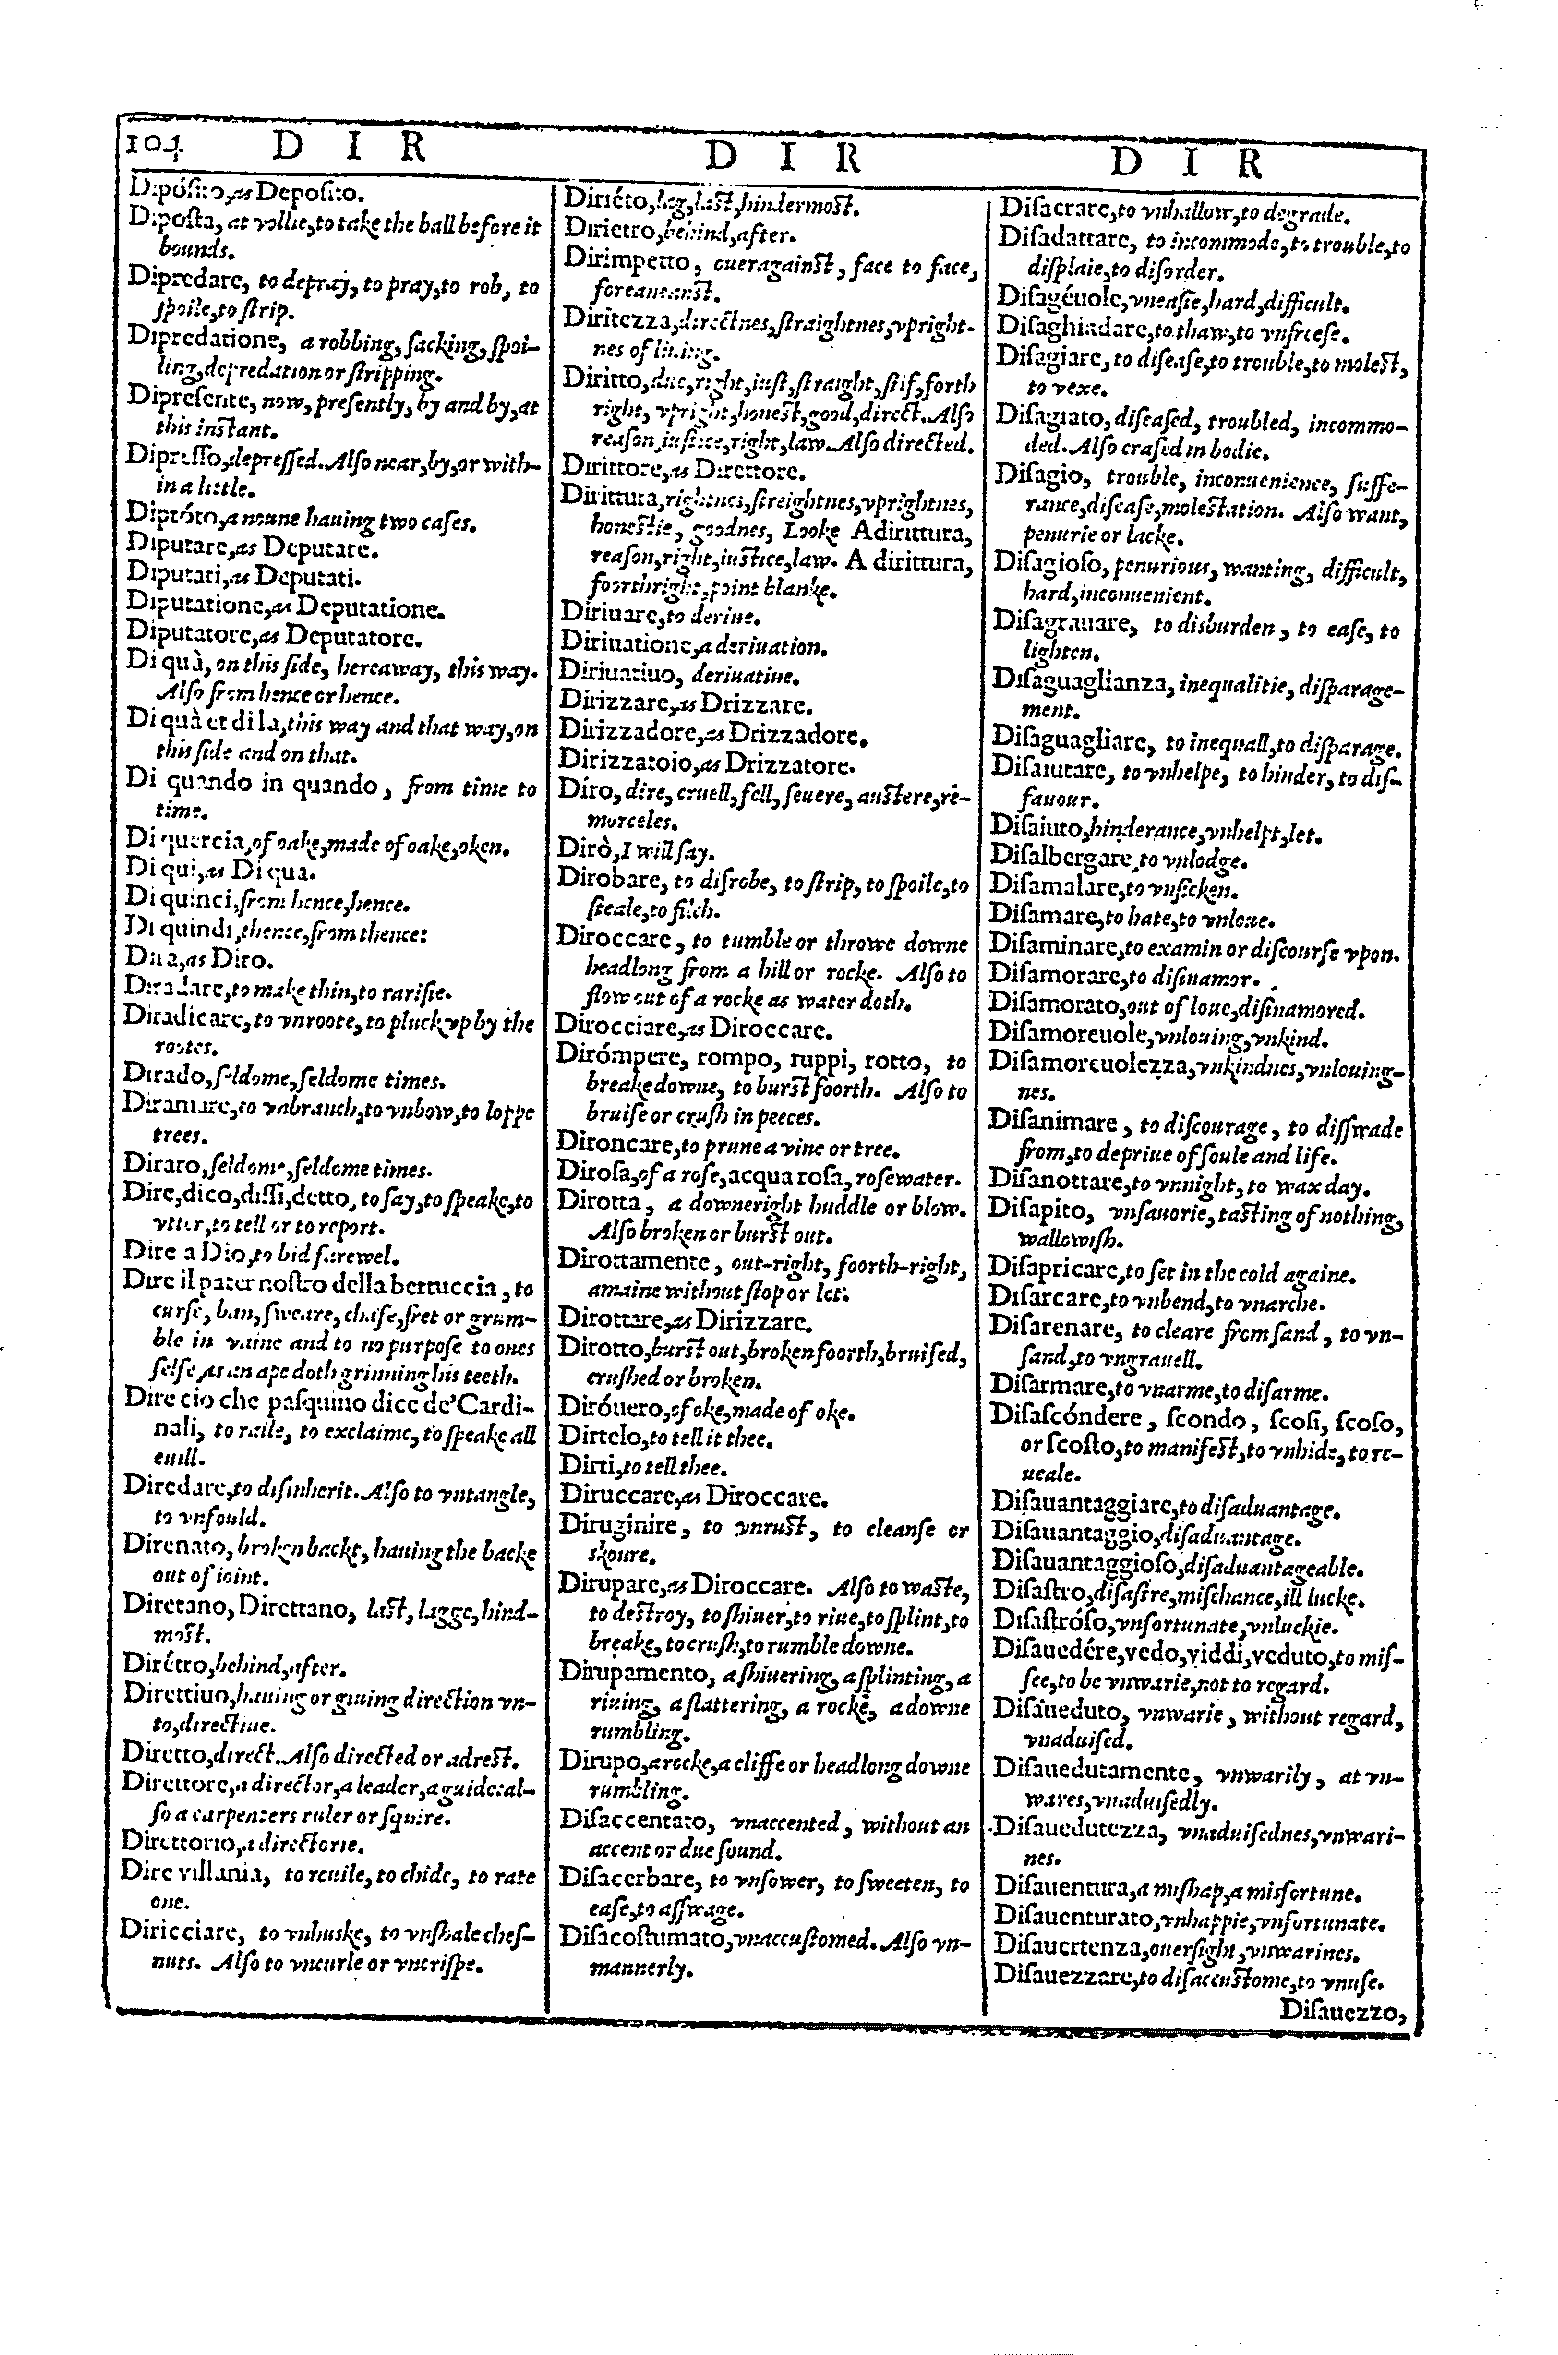 104 D I R D I R D I R
Dipósito, as Deposito.
Diposta, at vollie, to take the ball before it
bounds.
Dipredare, to depray, to pray, to rob, to
spoile, to strip.
Dipredatione, a robbing, sacking, spoi-
ling, depredation or stripping.
Dipresente, now, presently, by and by, at
this instant.
Dipresso, depressed. Also near, by, or with-
in a little.
Diptóto, a noune hauing two cases.
Diputare, as Deputare.
Diputati, as Deputati.
Diputatione, as Deputatione.
Diputatore, as Deputatore.
Di quà, on this side, hereaway, this way.
Also from hence or hence.
Di quà et di la, this way and that way, on
this side and on that.
Di quando in quando, from time to
time.
Di quercia, of oake, made of oake, oken.
Di qui, as Di qua.
Di quinci, from hence, hence.
Di quindi, thence, from thence:
Dira, as Diro.
Diradare, to make thin, to rarifie.
Diradicare, to vnroote, to pluck vp by the
rootes.
Dirado, seldome, seldome times.
Diramare, to vnbranch, to vnbow, to loppe
trees.
Diraro, seldome, seldome times.
Dire, dico, dissi, detto, to say, to speake, to
vtter, to tell or to report.
Dire a Dio, to bid farewel.
Dire il pater nostro della bertuccia, to
curse, ban, sweare, chafe, fret or grum-
ble in vaine and to no purpose to ones
selfe as an ape doth grinning his teeth.
Dire cio che pasquino dice de'Cardi-
nali, to raile, to exclaime, to speake all
euill.
Diredare, to disinherit. Also to vntangle,
to vnfould.
Direnato, broken backt, hauing the backe
out of ioint.
Diretano, Direttano, last, lagge, hind-
most.
Diétro, behind, after.
Direttiuo, hauing or giuing direction vn-
to, directiue.
Diretto, direct. Also directed or adrest.
Direttore, a director, a leader, a guide: al-
so a carpenters ruler or squire.
Direttorio, a directorie.
Dire villania, to reuile, to chide, to rate
one.
Diricciare, to vnhuske, to vnshale ches-
nuts. Also to vncurle or vncrispe.
Diriéto, lag, last, hindermost.
Dirietro, behind, after.
Dirimpetto, oueragainst, face to face,
foreaneanst.
Diritezza, directnes, straightnes, vpright-
nes of liuing.
Diritto, due, right, iust, straight, stif, forth
right, vpright, honest, good, direct. Also
reason, iustice, right, law. Also directed.
Dirittore, as Direttore.
Dirittura, rightnes, streightnes, vprightnes,
honestie, goodnes, Looke Adirittura,
reason, right, iustice, law. A dirittura,
foorthright, point blanke.
Diriuare, to deriue.
Diriuatione, a deriuation.
Diriuatiuo, deriuatiue.
Dirizzare, as Drizzare.
Dirizzadore, as Drizzadore.
Dirizzatoio, as Drizzatore.
Díro, dire, cruell, fell, seuere, austere, re-
morceles.
Dirò, I will say.
Dirobare, to disrobe, to strip, to spoile, to
steale, to filch.
Diroccare, to tumble or throwe downe
headlong from a hill or rocke. Also to
flow out of a rocke as water doth.
Dirocciare, as Diroccare.
Dirómpere, rompo, ruppi, rotto, to
breake downe, to burst foorth. Also to
bruise or crush in peeces.
Dironcare, to prune a vine or tree.
Dirosa, of a rose, acqua rosa, rosewater.
Dirotta, a downeright huddle or blow.
Also broken or burst out.
Dirottamente, out-right, foorth-right,
amaine without stop or let.
Dirottare, as Dirizzare.
Dirotto, burst out, broken foorth, bruised,
crushed or broken.
Diróuero, of oke, made of oke.
Dirtelo, to tell it thee.
Dirti, to tell thee.
Diruccare, as Diroccare.
Diruginire, to vnrust, to cleanse or
skoure.
Dirupare, as Diroccare. Also to waste,
to destroy, to shiuer, to riue, to splint, to
breake, to crush, to rumble downe.
Dirupamento, a shiuering, a splinting, a
riuing, a flattering, a rocke, a downe
rumbling.
Dirupo, a rocke, a cliffe or headlong downe
rumbling.
Disaccentato, vnaccented, without an
accent or due sound.
Disacerbare, to vnsower, to sweeten, to
ease, to asswage.
Disacostumato, vnaccustomed. Also vn-
mannerly.
Disacrare, to vnhallow, to degrade.
Disadattare, to incommode, to trouble, to
displaie, to disorder.
Disagéuole, vneasie, hard, difficult.
Disaghiadare, to thaw, to vnfreese.
Disagiare, to disease, to trouble, to molest,
to vexe.
Disagiato, diseased, troubled, incommo-
ded. Also crased in bodie.
Disagio, trouble, inconuenience, suffe-
rance, disease, molestation. Also want,
penurie or lacke.
Disagioso, penurious, wanting, difficult,
hard, inconuenient.
Disagrauare, to disburden, to ease, to
lighten.
Disaguaglianza, inequalitie, disparage-
ment.
Disaguagliare, to inequall, to disparage.
Disaiutare, to vnhelpe, to hinder, to dis-
fauour.
Disaiuto, hinderance, vnhelpt, let.
Disalbergare, to vnlodge.
Disamalare, to vnsicken.
Disamare, to hate, to vnloue.
Disaminare, to examin or discourse vpon.
Disamorare, to disinamor.
Disamorato, out of loue, disinamored.
Disamoreuole, vnlouing, vnkind.
Disamoreuolezza, vnkindnes, vnlouing-
nes.
Disanimare, to discourage, to disswade
from, to depriue of soule and life.
Disanottare, to vnnight, to wax day.
Disapito, vnsauorie, tasting of nothing,
wallowish.
Disapricare, to set in the cold againe.
Disarcare, to vnbend, to vnarche.
Disarenare, to cleare from sand, to vn-
sand, to vngrauell.
Disarmare, to vnarme, to disarme.
Disascóndere, scondo, scosi, scoso,
or scosto, to manifest, to vnhide, to re-
ueale.
Disauantaggiare, to disaduantage.
Disauantaggio, disaduantage.
Disauantaggioso, disaduantageable.
Disastro, disastre, mischance, ill lucke.
Disastróso, vnfortunate, vnluckie.
Disauedére, vedo, viddi, veduto, to mis-
see, to be vnwarie, not to regard.
Disaueduto, vnwarie, without regard,
vnaduised.
Disauedutamente, vnwarily, at vn-
wares, vnaduisedly.
Disauedutezza, vnaduisednes, vnwari-
nes.
Disauentura, a mishap, a misfortune.
Disauenturato, vnhappie, vnfortunate.
Disauertenza, ouersight, vnwarines.
Disauezzare, to disaccustome, to vnuse.
Disauezzo,